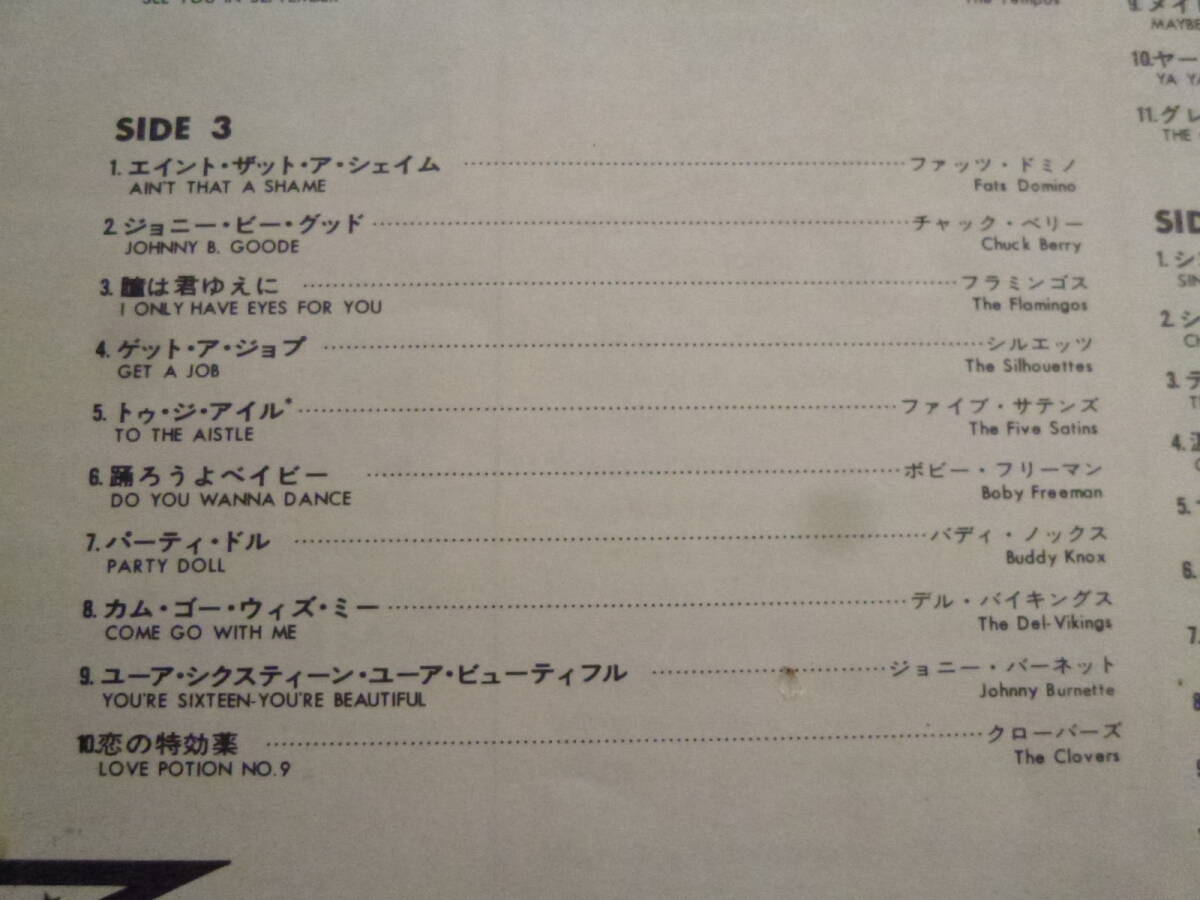 SEE YOU IN SEPTEMBER
The Tempos
SIDE 3
1. エイント・ザット・ア・シェイム ファッツ・ドミノ
AIN'T THAT A SHAME Fats Domino
2. ジョニー・ビー・グッド チャック・ベリー
JOHNNY B. GOODE Chuck Berry
3. 瞳は君ゆえに フラミンゴス
I ONLY HAVE EYES FOR YOU The Flamingos
4. ゲット・ア・ジョブ シルエッツ
GET A JOB The Silhouettes
5. トゥ・ジ・アイル* ファイブ・サテンズ
TO THE AISTLE The Five Satins
6. 踊ろうよベイビー ボビー・フリーマン
DO YOU WANNA DANCE Boby Freeman
7. パーティ・ドル バディ・ノックス
PARTY DOLL Buddy Knox
8. カム・ゴー・ウィズ・ミー デル・バイキングス
COME GO WITH ME The Del-Vikings
9. ユーア・シクスティーン・ユーア・ビューティフル ジョニー・バーネット
YOU'RE SIXTEEN-YOU'RE BEAUTIFUL Johnny Burnette
10. 恋の特効薬 クローバーズ
LOVE POTION NO.9 The Clovers
9. メイ
MAYBE
10. ヤー
YA YA
11. グレ
THE
SID
1. シ
SIN
2. シ
CH
3. テ
4.
5.
6.
7.
8
9